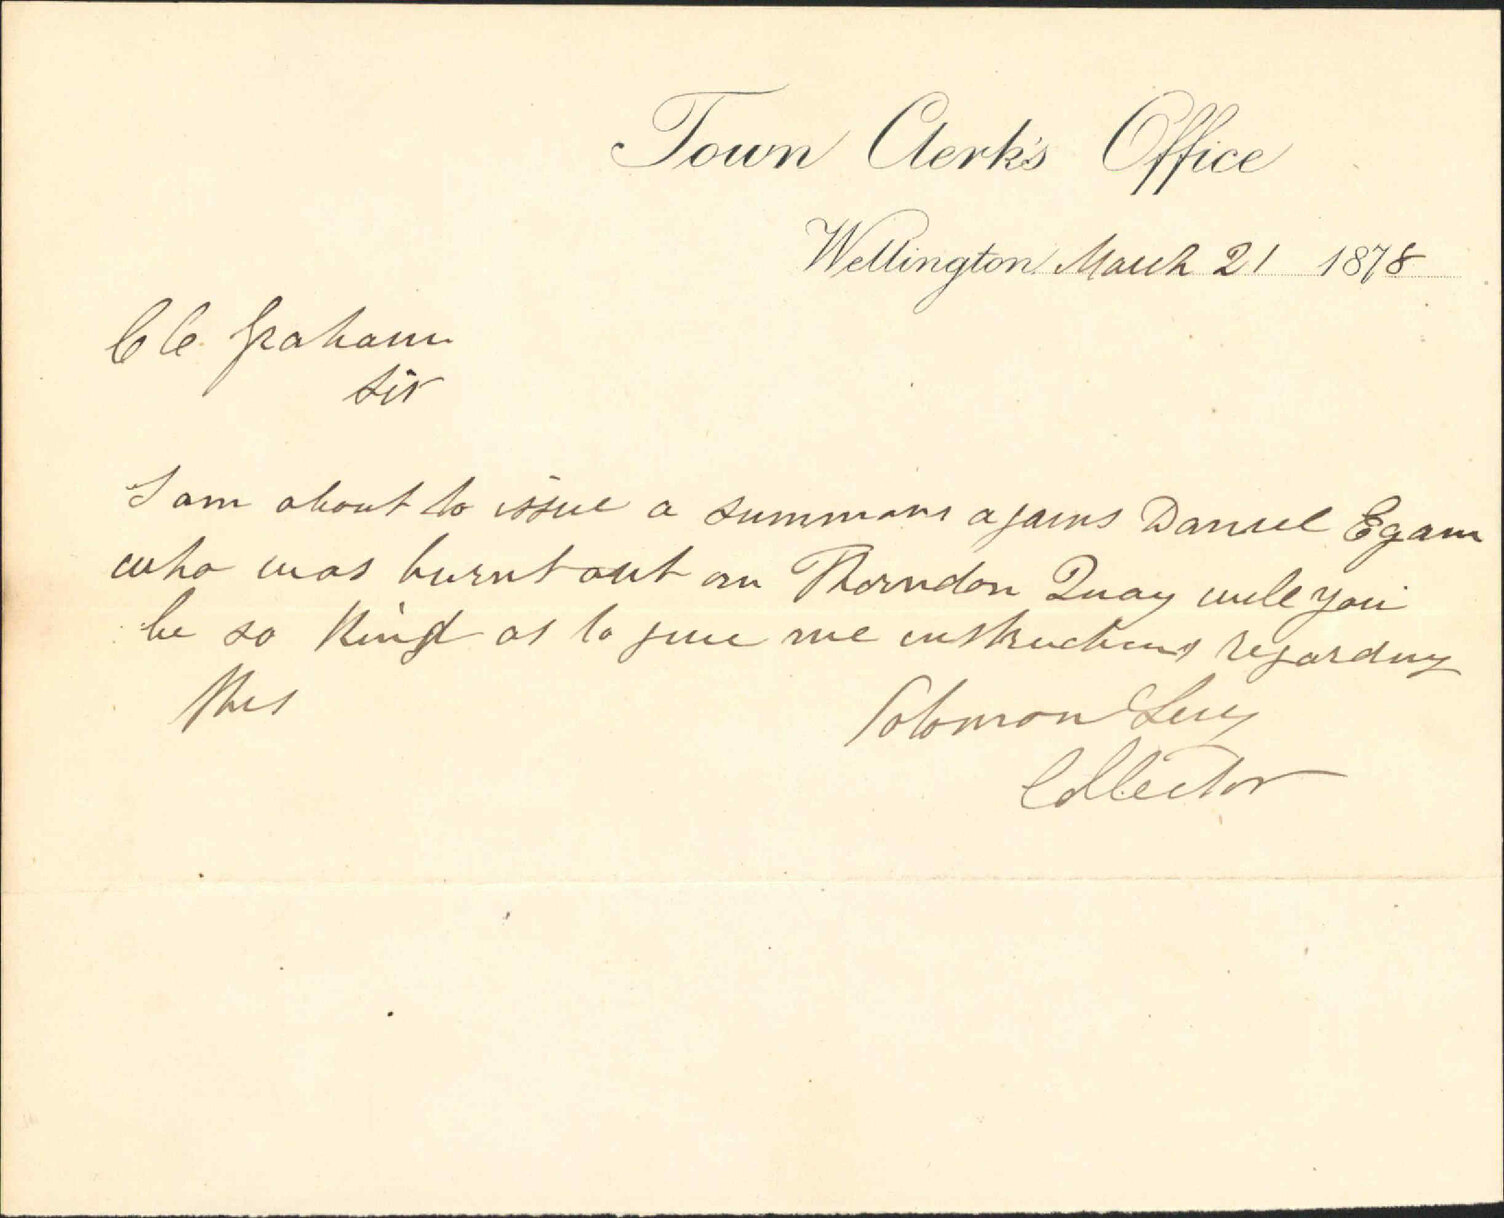 Town Clerk's Office
Wellington March 21 1878
C C Graham
Sir
I am about to issue a summons agains Daniel Egan
who was burnt out on Thorndon Quay will you
be so kind as to give me instructions regarding
this
Solomon Levy
Collector